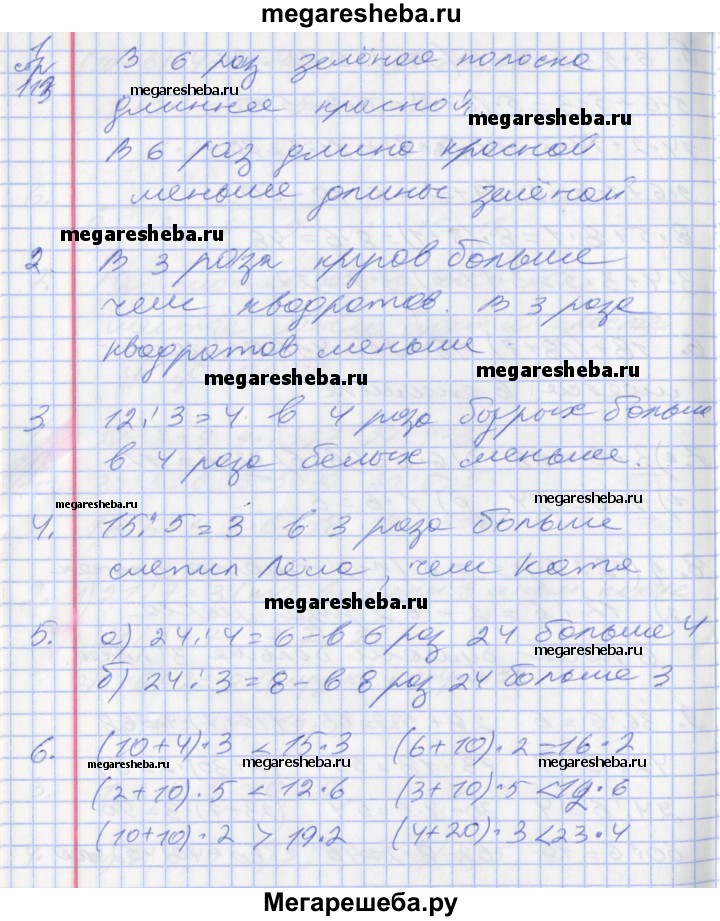 megaresheba.ru
1
стр
113
В 6 раз зелёная полоска
megaresheba.ru
длиннее красной,
megaresheba.ru
В 6 раз длина красной
меньше длины зелёной
megaresheba.ru
2. В 3 раза кругов больше
чем квадратов. В 3 раза
квадратов меньше
megaresheba.ru
megaresheba.ru
3. 12:3=4. в 4 раза бурых больше
в 4 раза белых меньше.
megaresheba.ru
megaresheba.ru
4. 15:5=3 в 3 раза больше
слепил Лёла, чем Катя
megaresheba.ru
5. а) 24:4=6-в 6 раз 24 больше 4
б) 24:3=8-в 8 раз 24 больше 3
6. (10+4)·3 <15·3 (6+10)·2=16·2
megaresheba.ru megaresheba.ru megaresheba.ru
(2+10)·5 <12·6 (3+10)·5 <19·6
(10+10)·2 > 19·2 (4+20)·3<23·4
Мегарешеба.ру